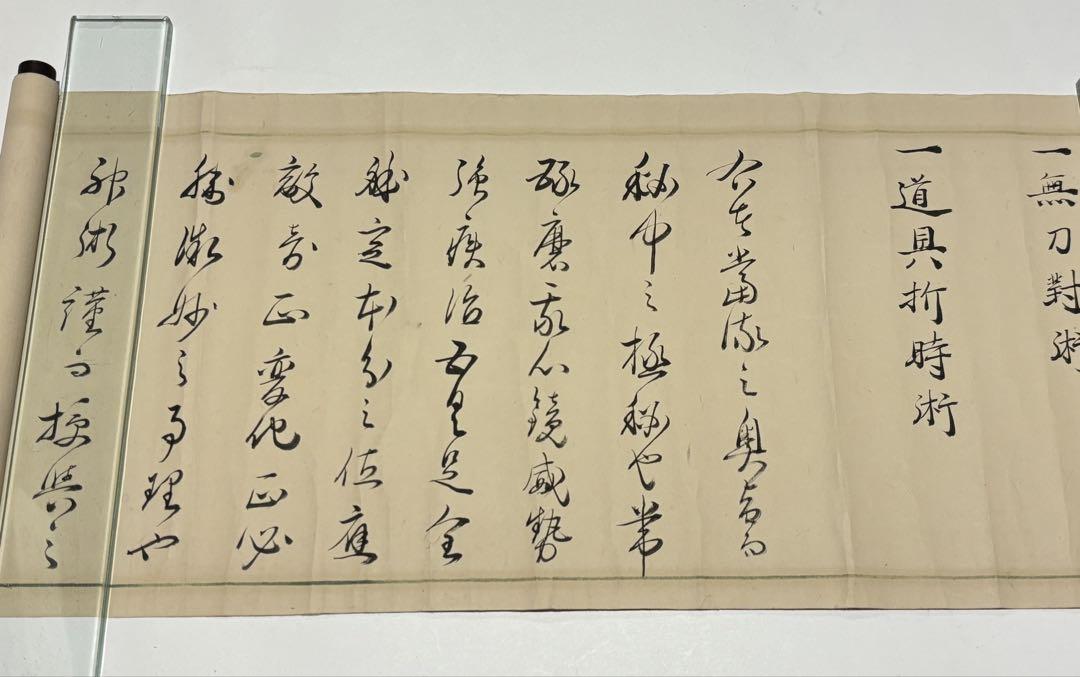 一無刀對術
一道具折時術
右者當流之奥旨而
秘中之極秘也常
琢磨我心鏡威勢
強疾治五具足全
躰定本分之位應
敵音正変化正必
勝微妙之事理也
神術謹而授與之